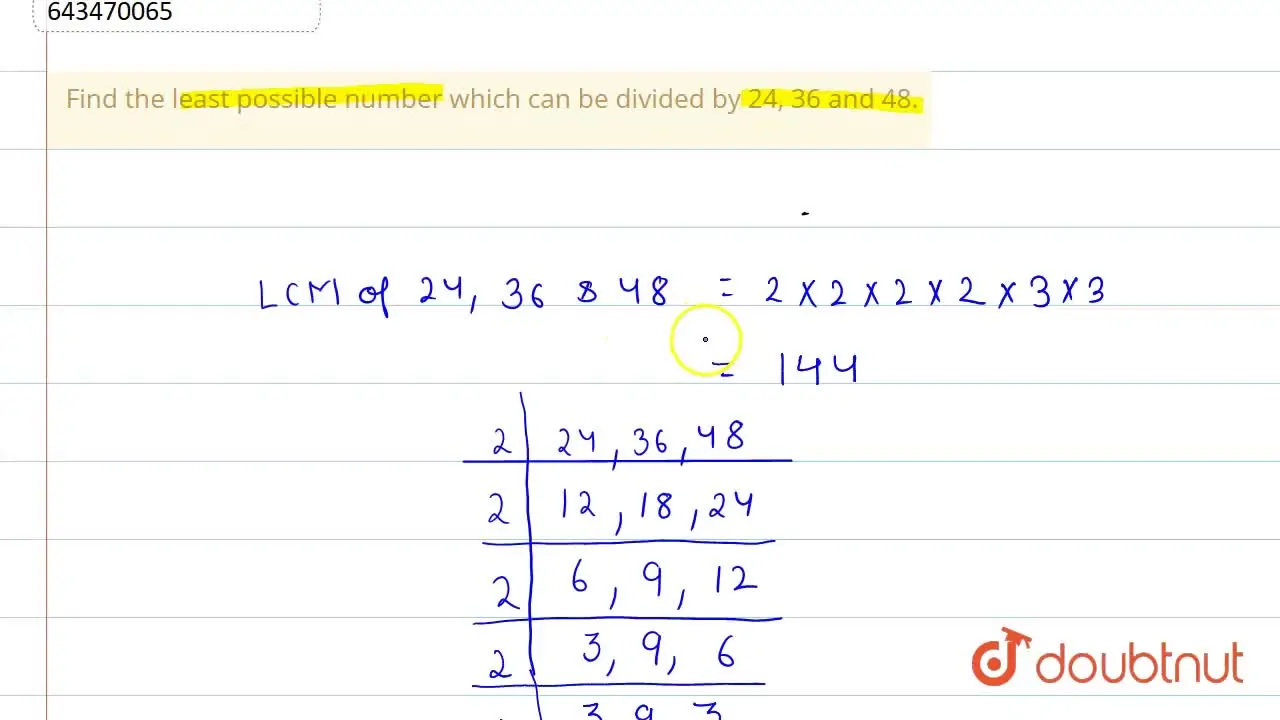 643470065
Find the least possible number which can be divided by 24, 36 and 48.
LCM of 24, 36 & 48 = 2 x 2 x 2 x 2 x 3 x 3
= 144
2 | 24, 36, 48
2 | 12, 18, 24
2 | 6, 9, 12
2 | 3, 9, 6
3 9 3
doubtnut